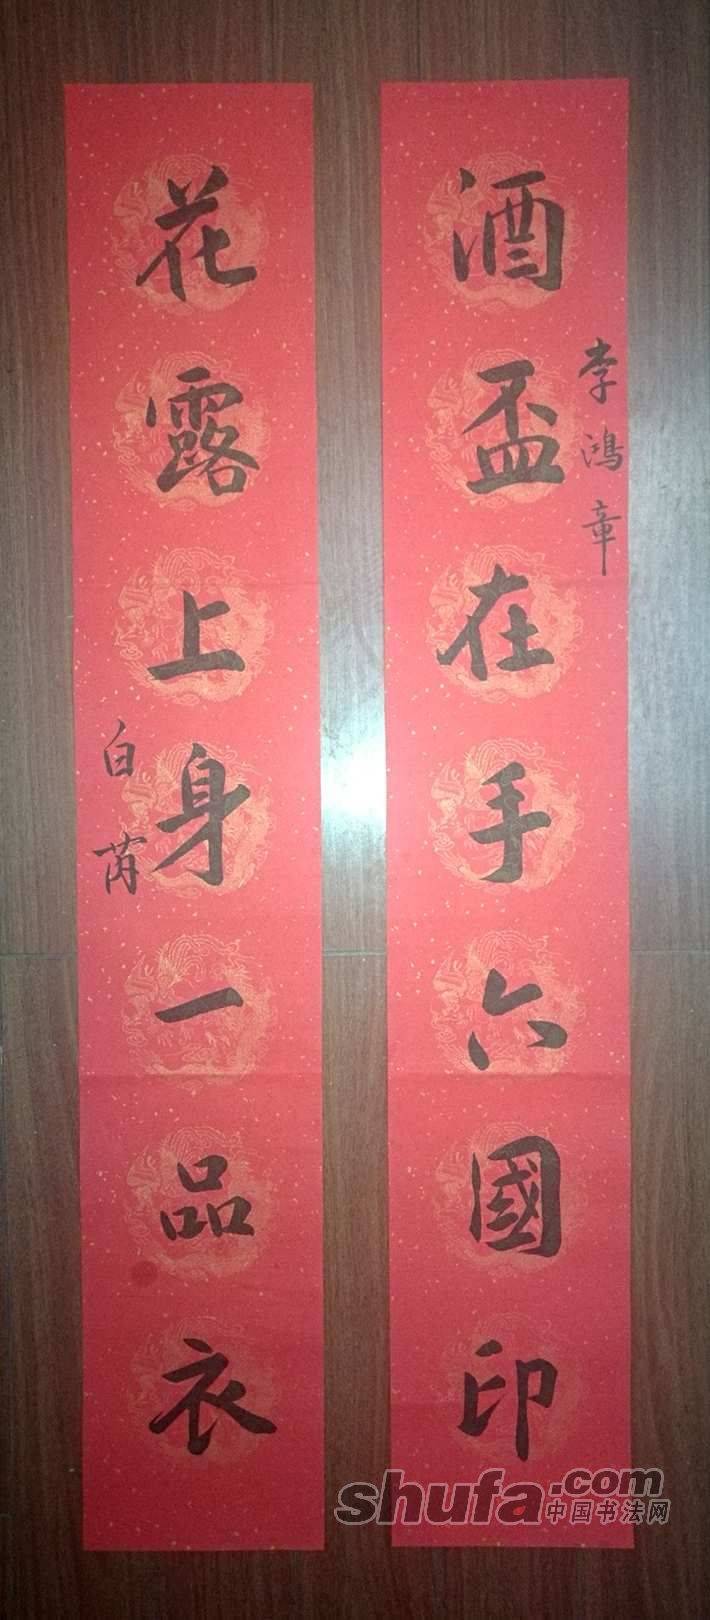 酒盃在手六國印
李鴻章
花露上身一品衣
白芮
shufa.com
中国书法网